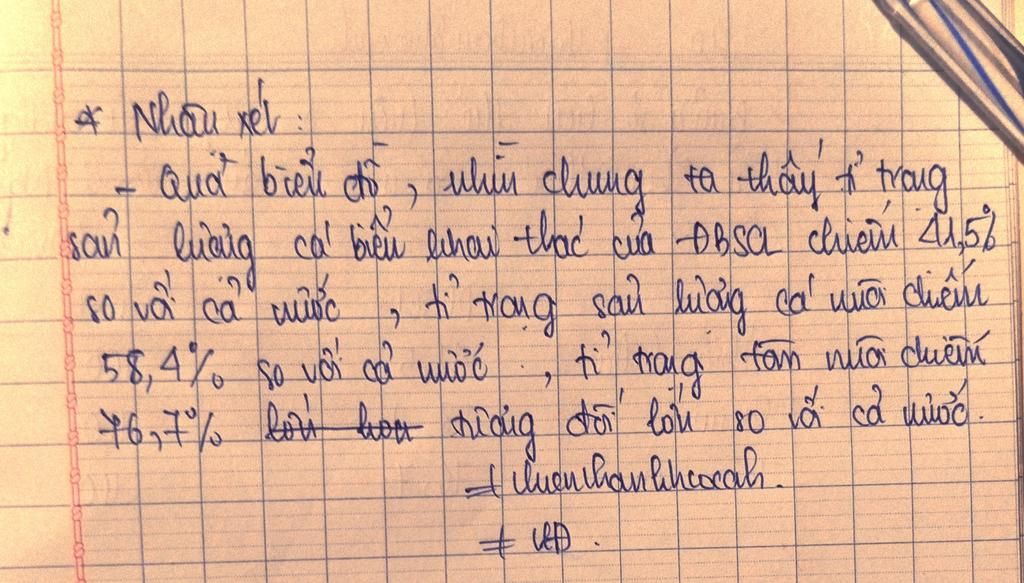 * Nhận xét:
- Qua biểu đồ, nhìn chung ta thấy tỉ trọng
sản lượng cá biển khai thác của ĐBSCL chiếm 41,5%
so với cả nước, tỉ trọng sản lượng cá nuôi chiếm
58,4% so với cả nước, tỉ trọng tôm nuôi chiếm
76,7% lớn hơn tương đối lớn so với cả nước.